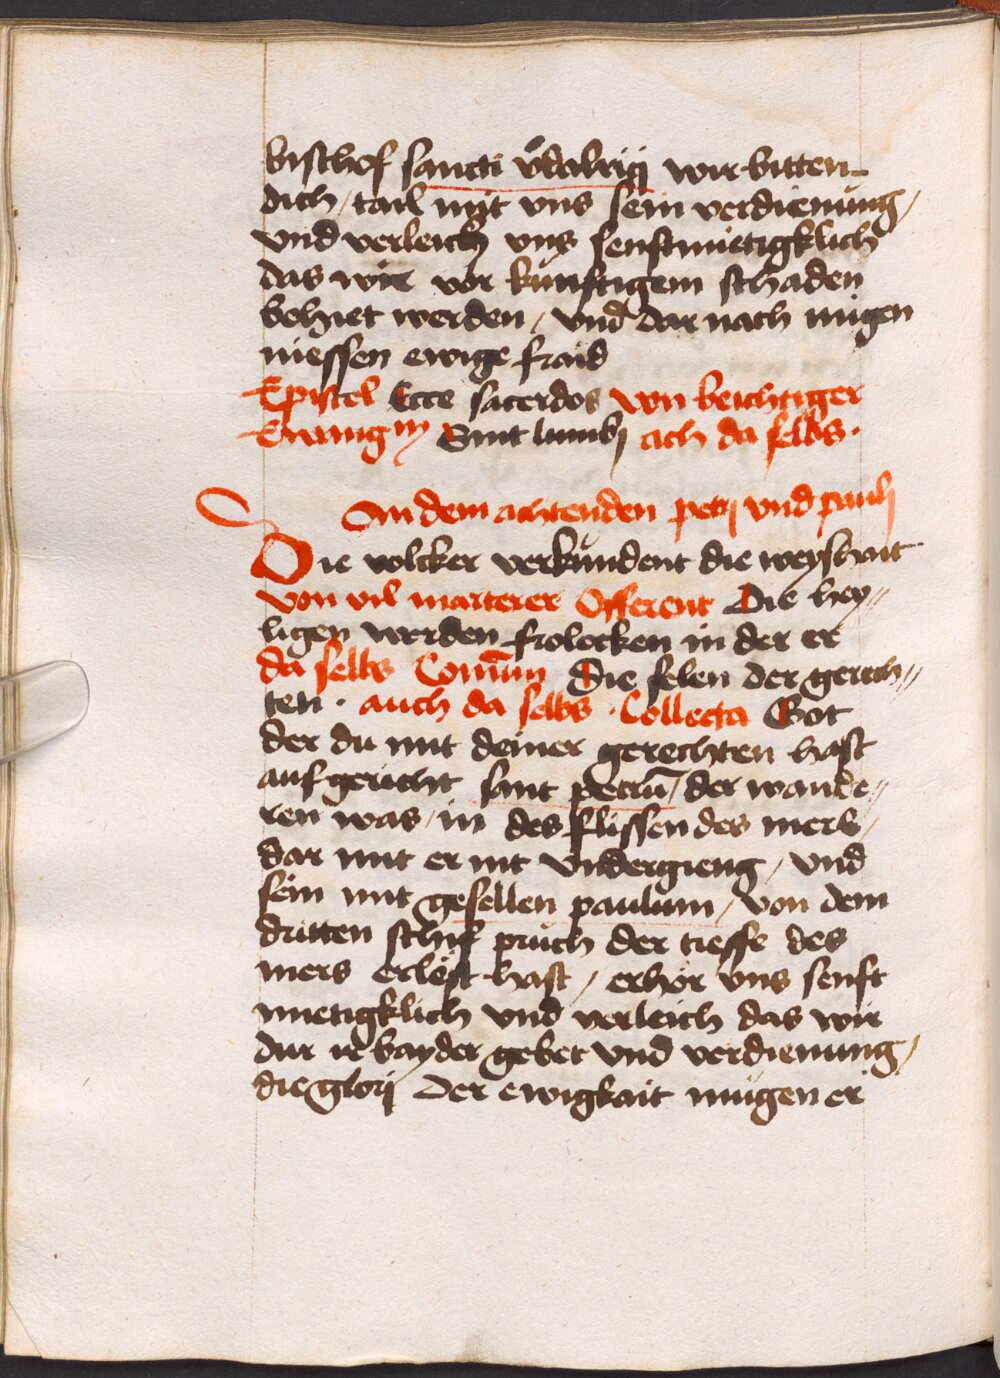 bischof sancti vͦdalrigj wir bitten
dich / tail mit vns sein verdienung /
vnd verleich vns senftmietigklich
das wir vor kunftigem schaden
behiet werden / vnd dar nach mügen
niessen ewige fraid
Epistel Ecce sacerdos von beichtiger
Ewang Sint lumbj ach da selbs .
An dem achtenden petrj vnd paulj
Die volcker verkundent die weyshait
von vil marterer Offerent Die hey//
ligen werden frolocken in der er
da selbs Comūn Die selen der gerech//
ten . auch da selbs . Collecta Got
der du mit deiner gerechten hast
auf gericht sant petrū / der wande//
ren was / in des flissen des mers /
dar mit er nit vndergieng / vnd
sein mit gesellen paulum / von dem
dritten schif pruch der tieffe des
mers erlöst hast / erhör vns senft
mietigklich vnd verleich das wir
dur ir bayder gebet vnd verdienung /
die glorj der ewigkait mügen er